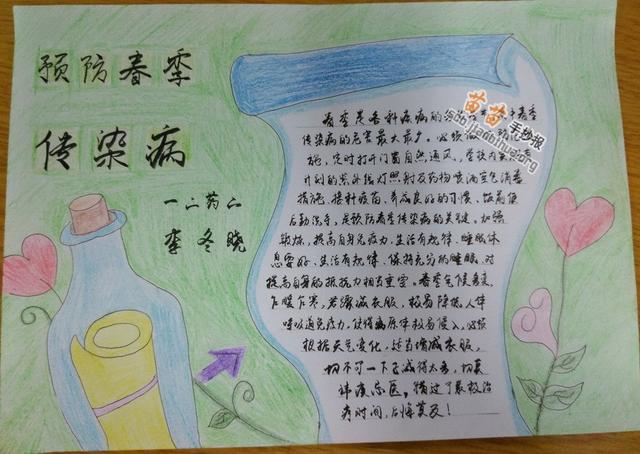 预防春季
传染病
一二药二
李冬晓
苗苗
手抄报
春季是各种疾病的 春季
传染病的危害最大最多。必须
施，定时打开门窗自然通风，
计划的紫外线灯照射及药物喷洒空气消毒
措施，接种疫苗，养成良好的习惯，饭前便
后勤洗手，是预防春季传染病的关键，加强
锻炼，提高自身免疫力，生活有规律，睡眠休
息要好，生活有规律，保持充分的睡眠，对
提高自身的抵抗力相当重要。春季气候多变，
乍暖乍寒，若骤减衣服，极易降低人体
呼吸道免疫力，使得病原体极易侵入，必须
根据天气变化，适当增减衣服，
切不可一下子减得太多，切莫
讳疾忌医，错过了最极治
疗时间，后悔莫及！